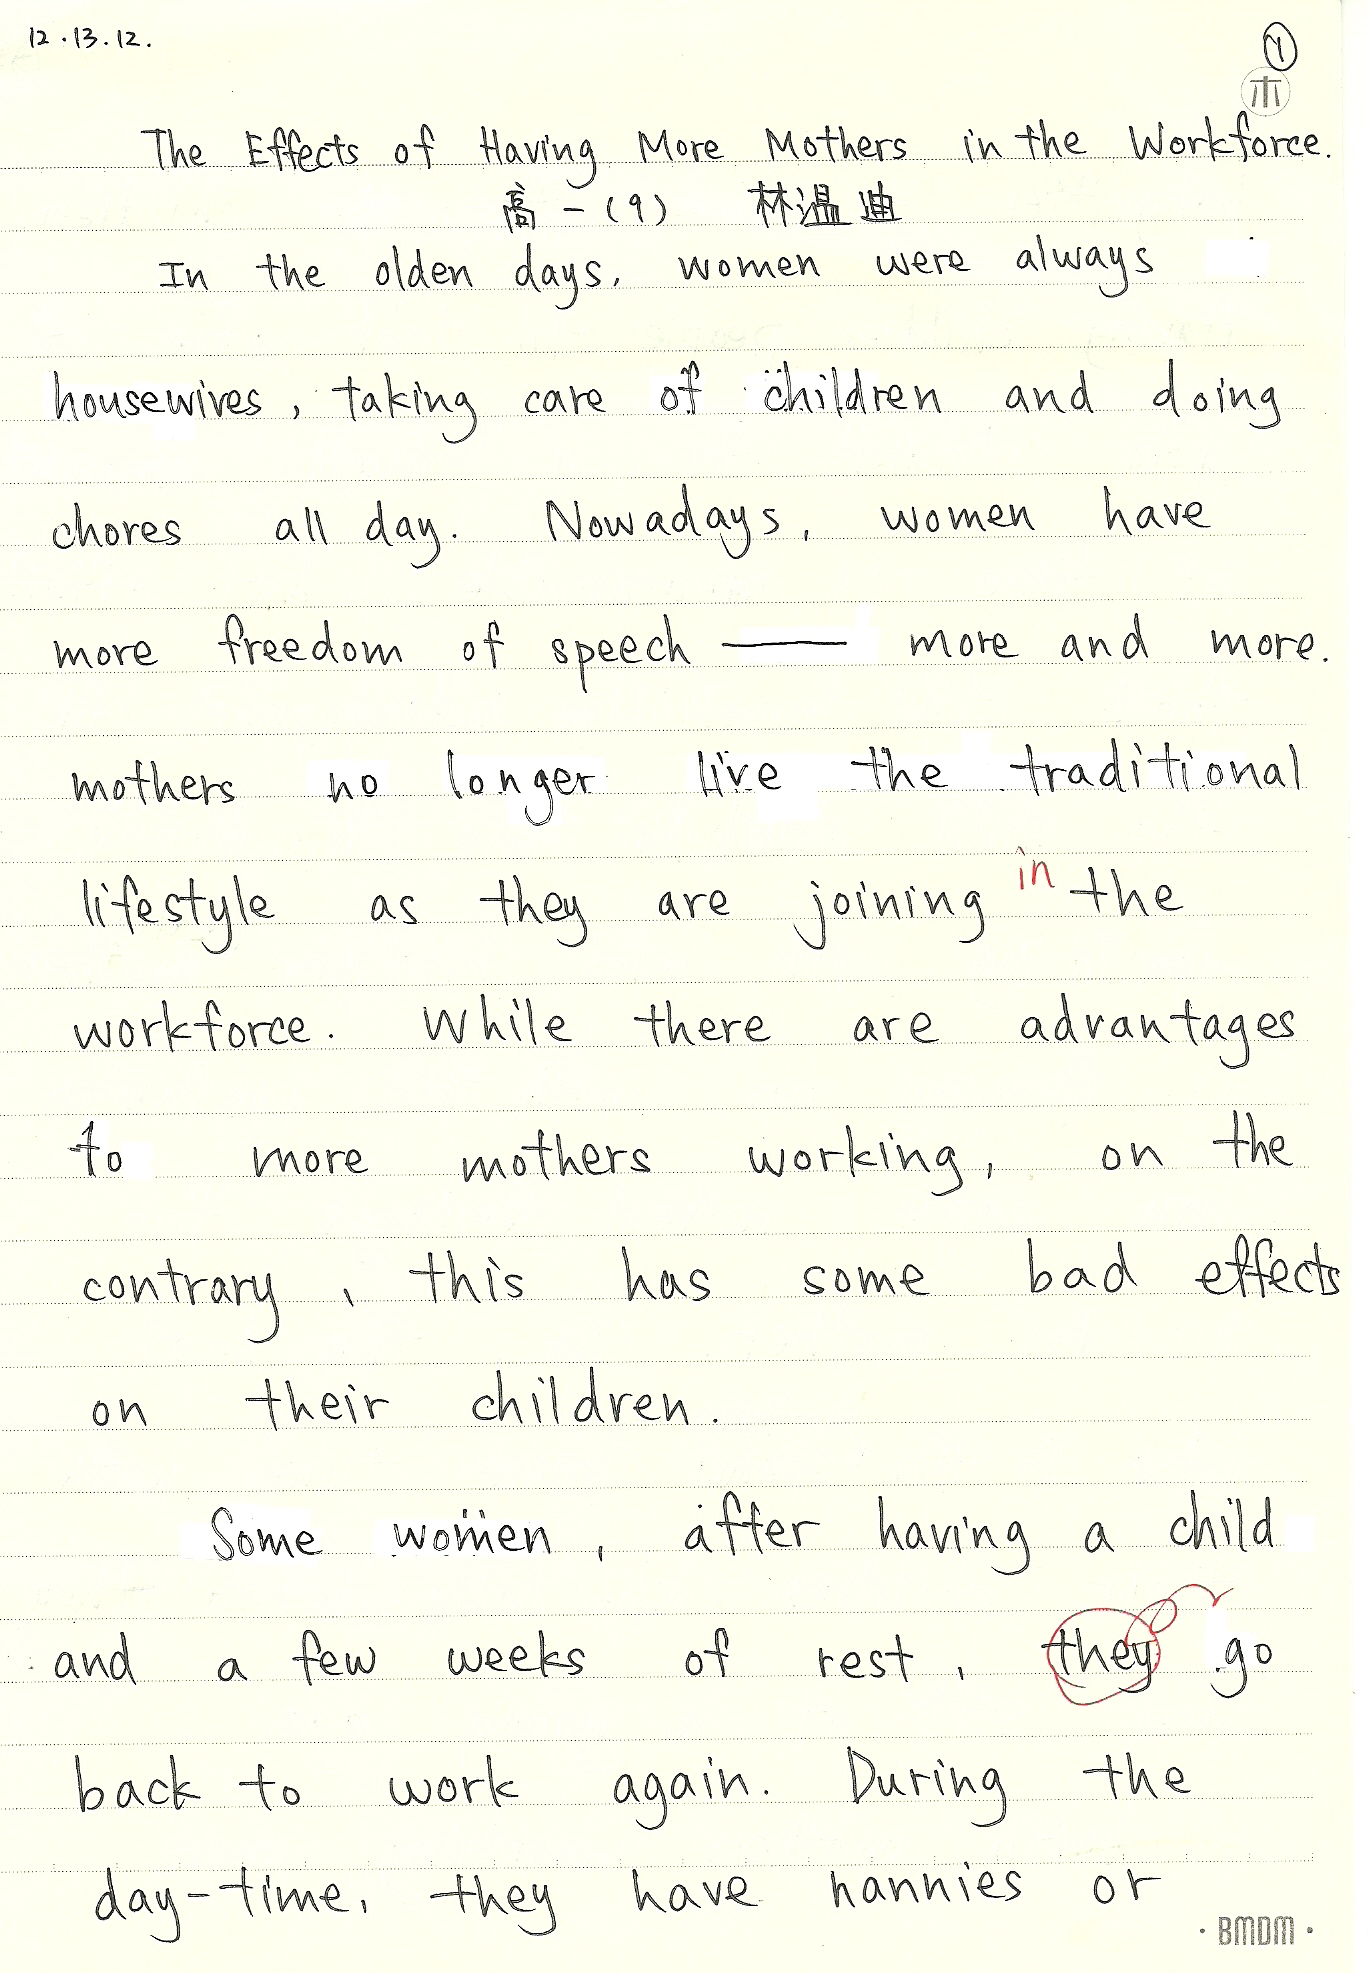 12.13.12.
①
木
The Effects of Having More Mothers in the Workforce.
高一(9) 林温迪
In the olden days, women were always
housewives, taking care of children and doing
chores all day. Nowadays, women have
more freedom of speech — more and more.
mothers no longer live the traditional
lifestyle as they are joining in the
workforce. While there are advantages
to more mothers working, on the
contrary, this has some bad effects
on their children.
Some women, after having a child
and a few weeks of rest, they go
back to work again. During the
day-time, they have nannies or
· BMDM ·